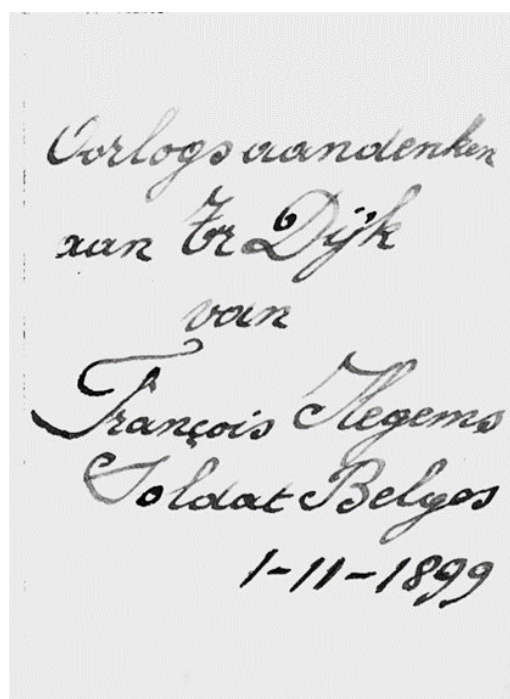 Oorlogsaandenken
aan Tr Dijk
van
François Hegems
Soldat Belges
1-11-1899